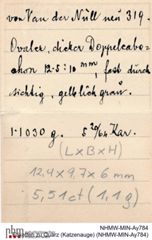 von Van der Nüll neu 319.
Ovaler, dicker Doppelcabo=
chon 12·5:10 mm, fast durch
sichtig, gelblich grau.
1·1030 g. 5 29/64 Kar.
(L×B×H)
12,4×9,7×6 mm
5,51ct (1,1g)
nhm
zu Quarz (Katzenauge) (NHMW-MIN-Ay784)
NHMW-MIN-Ay784